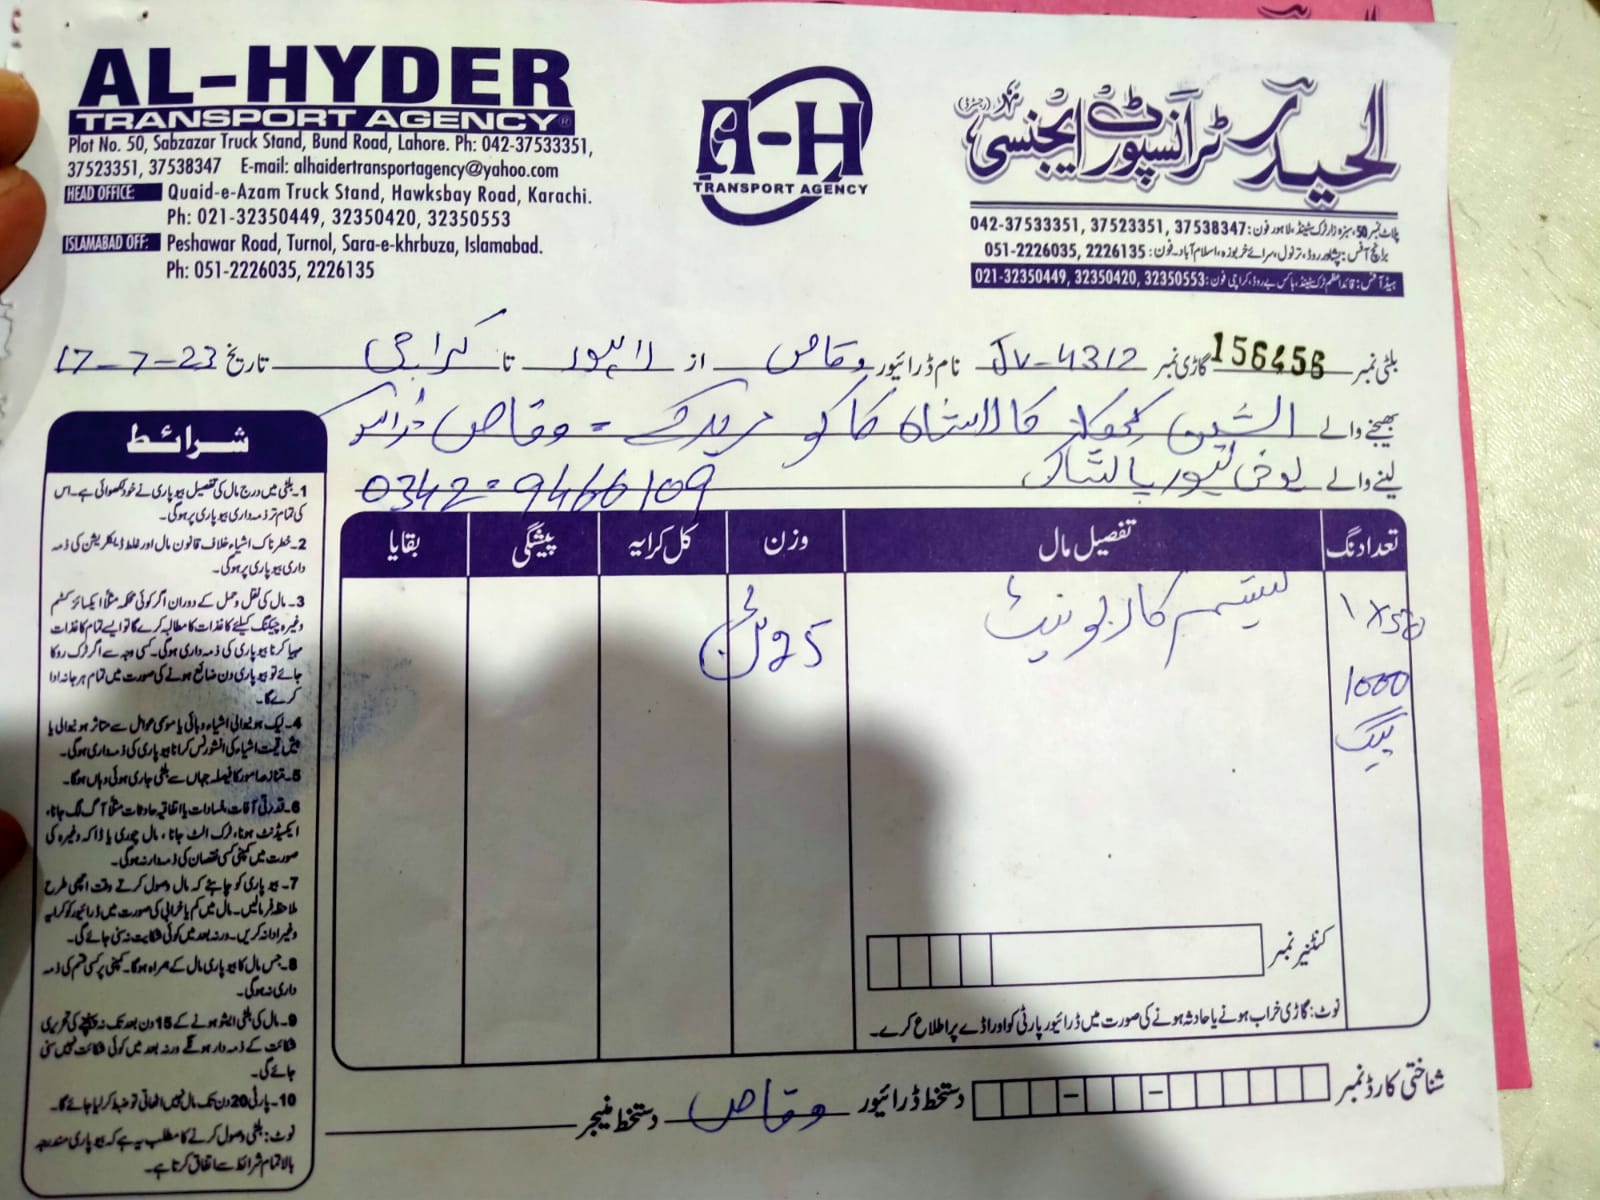 AL-HYDER
TRANSPORT AGENCY®
Plot No. 50, Sabzazar Truck Stand, Bund Road, Lahore. Ph: 042-37533351,
37523351, 37538347 E-mail: alhaidertransportagency@yahoo.com
HEAD OFFICE: Quaid-e-Azam Truck Stand, Hawksbay Road, Karachi.
Ph: 021-32350449, 32350420, 32350553
ISLAMABAD OFF: Peshawar Road, Turnol, Sara-e-khrbuza, Islamabad.
Ph: 051-2226035, 2226135
A-H
TRANSPORT AGENCY
الحیدر ٹرانسپورٹ ایجنسی (رجسٹرڈ)
پلاٹ نمبر 50، سبزہ زار ٹرک سٹینڈ، لاہور فون: 042-37533351, 37523351, 37538347
برانچ آفس: پشاور روڈ، ترنول، سرائے خربوزہ، اسلام آباد۔ فون: 051-2226035, 2226135
ہیڈ آفس: قائد اعظم ٹرک سٹینڈ، ہاکس بے روڈ، کراچی فون: 021-32350449, 32350420, 32350553
بلٹی نمبر 156456 گاڑی نمبر JV-4312 نام ڈرائیور وقاص از لاہور تا کراچی تاریخ 17-7-23
بھیجنے والے کالا شاہ کاکو مریدکے - وقاص
لینے والے 0342-9466109
تعداد نگ تفصیل مال وزن کل کرایہ پیشگی بقایا
1x50 کیلشیم کاربونیٹ 25
1000
بیگ
کنٹینر نمبر
نوٹ: گاڑی خراب ہونے یا حادثہ ہونے کی صورت میں ڈرائیور پارٹی کو اور اڈے پر اطلاع کرے۔
شناختی کارڈ نمبر دستخط ڈرائیور وقاص دستخط منیجر
شرائط
1۔ بلٹی میں درج مال کی تفصیل بیوپاری نے خود لکھوائی ہے۔ اس
کی تمام تر ذمہ داری بیوپاری پر ہوگی۔
2۔ خطرناک اشیاء خلاف قانون مال اور غلط ڈیکلریشن کی ذمہ
داری بیوپاری پر ہوگی۔
3۔ مال کی نقل و حمل کے دوران اگر کوئی محکمہ مثلاً ایکسائز کسٹم
وغیرہ چیکنگ کیلئے کاغذات کا مطالبہ کرے گا تو ایسے تمام کاغذات
مہیا کرنا بیوپاری کی ذمہ داری ہوگی۔ کسی وجہ سے اگر ٹرک روکا
جائے تو بیوپاری دن ضائع ہونے کی صورت میں تمام ہرجانہ ادا
کرے گا۔
4۔ لیک ہونیوالی اشیاء وبائی یا موسمی عوامل سے متاثر ہونیوالی یا
بیش قیمت اشیاء کی انشورنس کرانا بیوپاری کی ذمہ داری ہوگی۔
5۔ متنازعہ امور کا فیصلہ جہاں سے بلٹی جاری ہوئی وہاں ہوگا۔
6۔ قدرتی آفات، فسادات یا اتفاقیہ حادثات مثلاً آگ لگ جانا،
ایکسیڈنٹ ہونا، ٹرک الٹ جانا، مال چوری یا ڈاکہ وغیرہ کی
صورت میں کمپنی کسی نقصان کی ذمہ دار نہ ہوگی۔
7۔ بیوپاری کو چاہئے کہ مال وصول کرتے وقت اچھی طرح
ملاحظہ فرمالیں۔ مال میں کم یا خرابی کی صورت میں ڈرائیور کو کرایہ
وغیرہ ادا نہ کریں۔ ورنہ بعد میں کوئی شکایت نہ سنی جائے گی۔
8۔ جس مال کا بیوپاری مال کے ہمراہ ہوگا۔ کمپنی پر کسی قسم کی ذمہ
داری نہ ہوگی۔
9۔ مال کی بلٹی ایشو ہونے کے 15 دن بعد تک نہ پہنچنے کی تحریری
شکائت کے ذمہ دار ہونگے ورنہ بعد میں کوئی شکائت نہیں سنی
جائے گی۔
10۔ پارٹی 20 دن تک مال نہیں اٹھاتی تو ضبط کر لیا جائے گا۔
نوٹ: بلٹی وصول کرنے کا مطلب یہ ہے کہ بیوپاری مندرجہ
بالا تمام شرائط سے اتفاق کرتا ہے۔